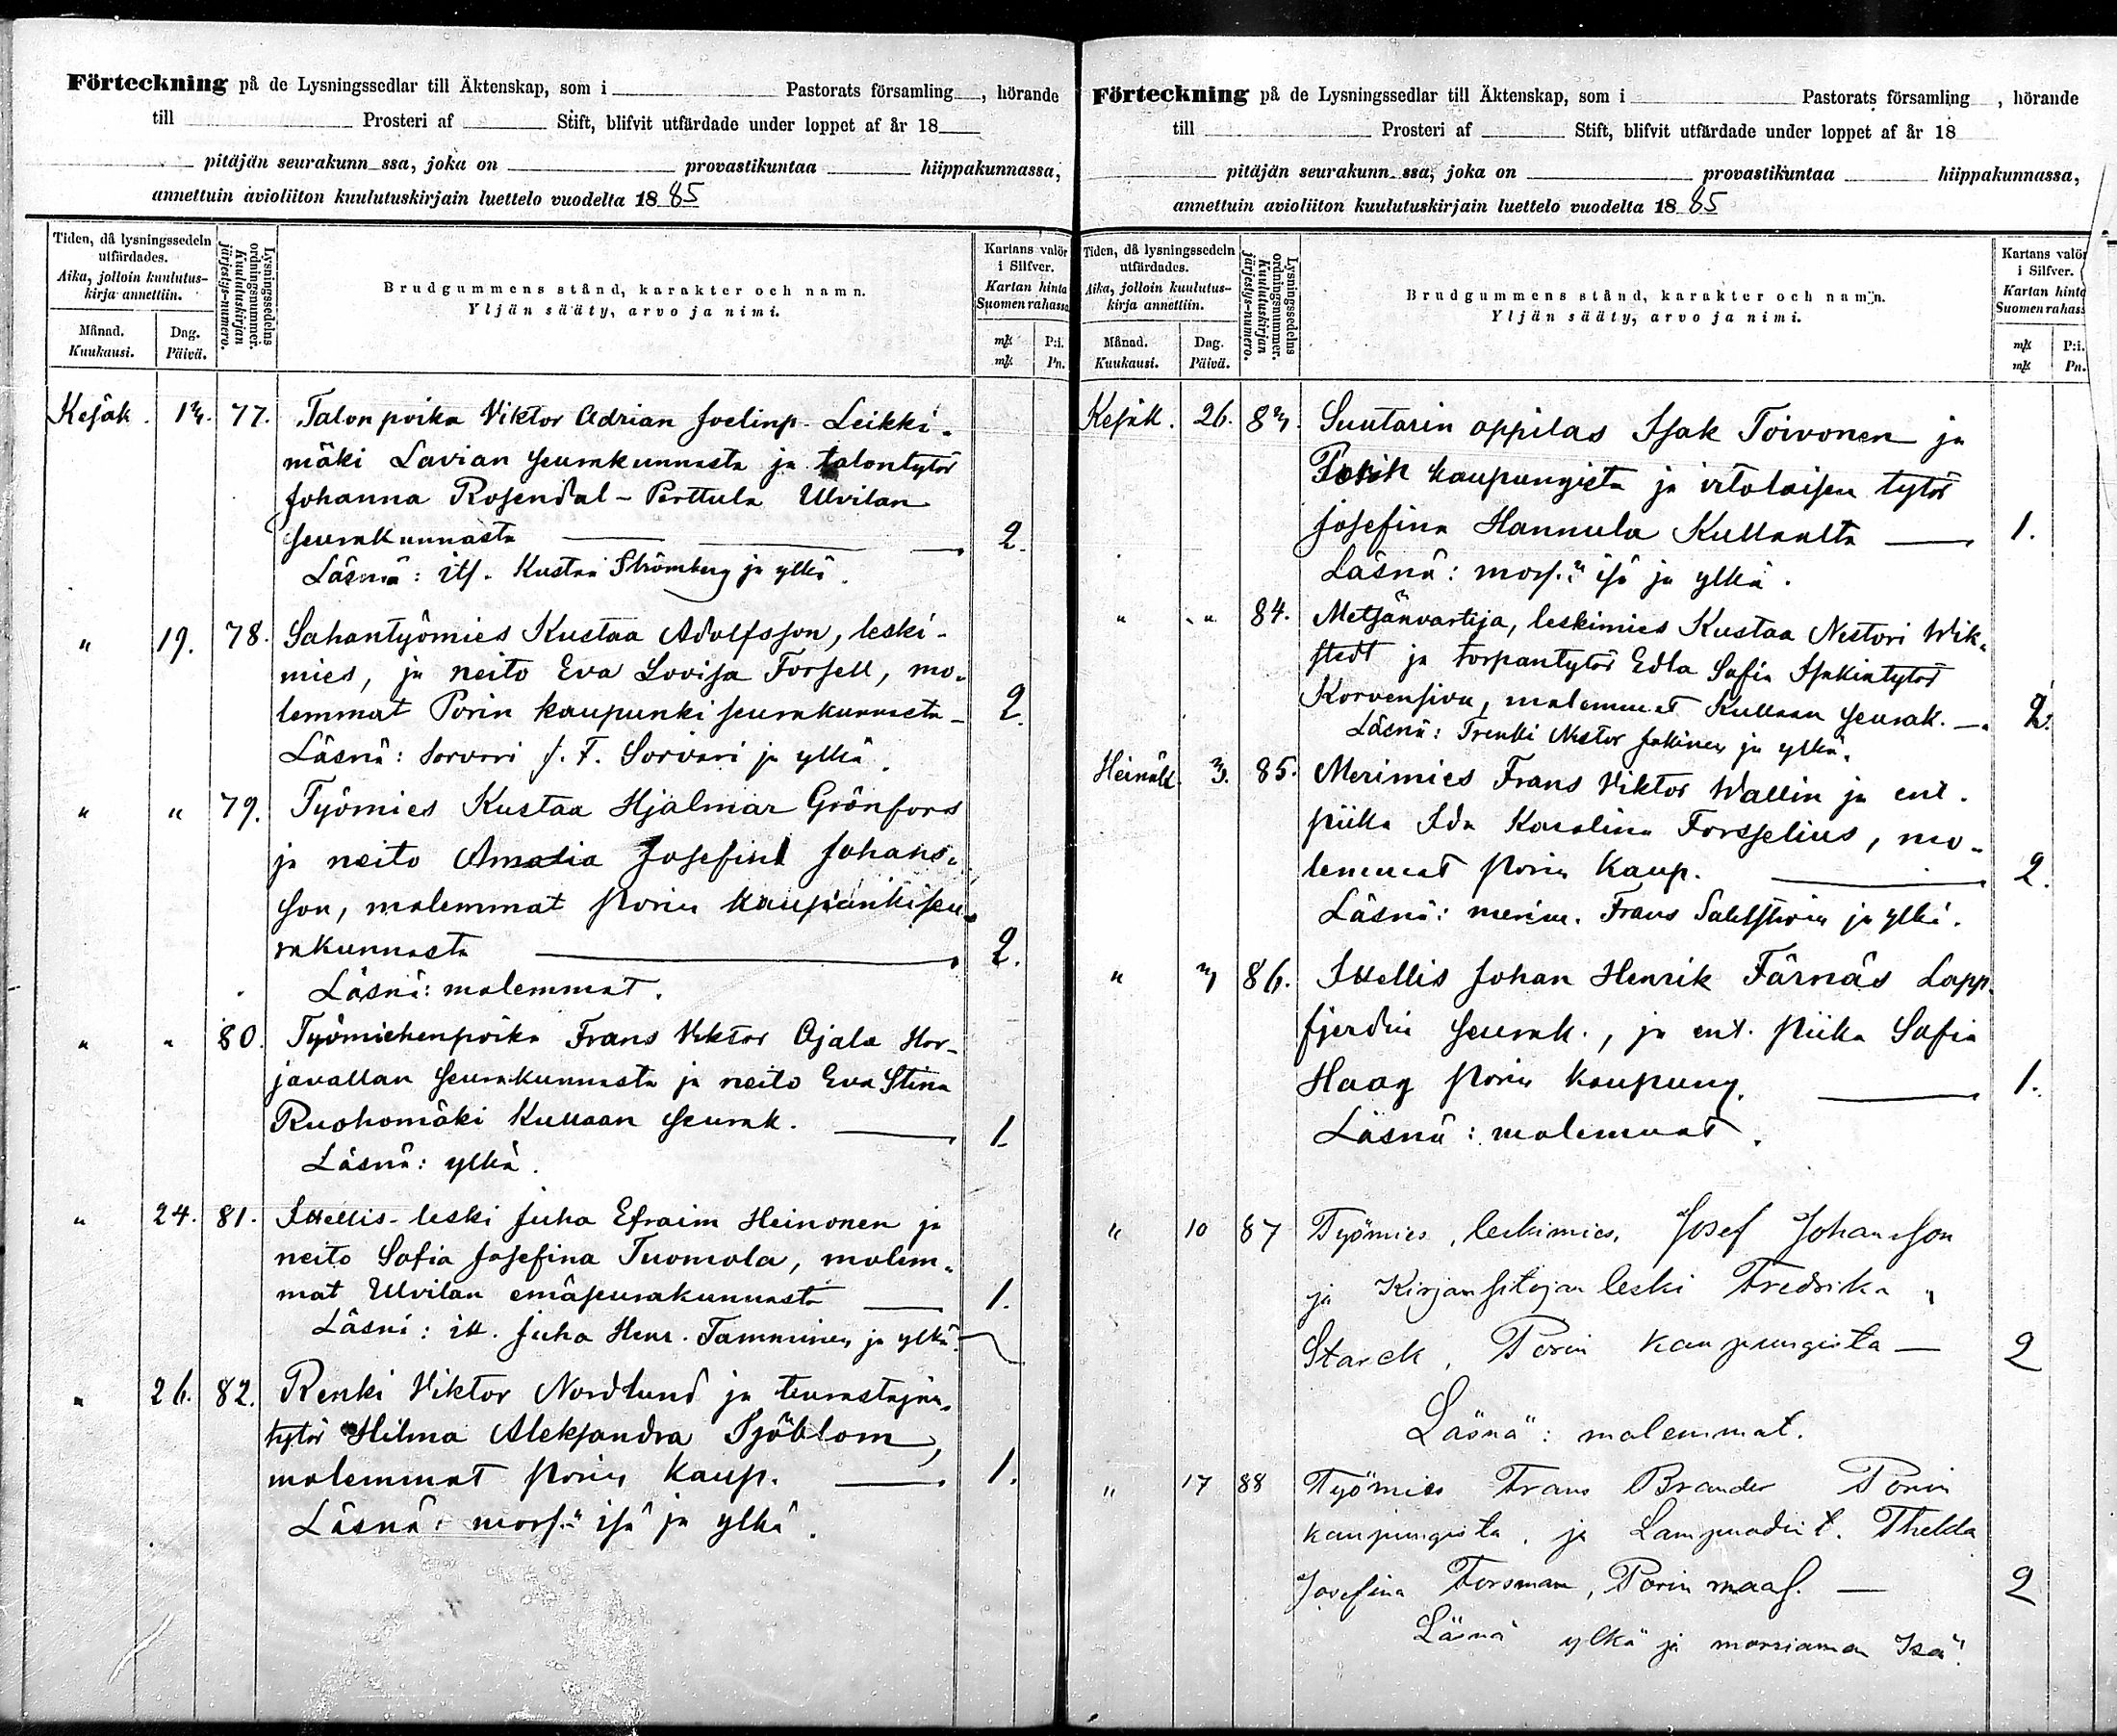 Förteckning på de Lysningssedlar till Äktenskap, som i Pastorats församling , hörande
till Prosteri af Stift, blifvit utfärdade under loppet af år 18
pitäjän seurakunn ssa, joka on provastikuntaa hiippakunnassa,
annettuin avioliiton kuulutuskirjain luettelo vuodelta 1885
Tiden, då lysningssedeln utfärdades.
Aika, jolloin kuulutus-kirja annettiin.
Månad. Kuukausi.
Dag. Päivä.
Lysningssedelns ordningsnummer.
Kuulutuskirjan järjestys-numero.
Brudgummens stånd, karakter och namn.
Yljän sääty, arvo ja nimi.
Kartans valör i Silfver.
Kartan hinta Suomen rahassa
mk P:i.
mk Pn.
Kesäk. 77. Talonpoika Viktor Adrian Joelinp. Leikki-
mäki Lavian seurakunnasta ja talontytör
Johanna Rosendal-Perttula Ulvilan
seurakunnasta 2.
Läsnä: itf. Kustaa Strömberg ja ylkä.
" 19. 78. Sahantyömies Kustaa Adolfsson, leski-
mies, ja neito Eva Lovisa Forsell, mo-
lemmat Porin kaupunki seurakunnasta 2.
Läsnä: Sorvari J. F. Sorvari ja ylkä.
" " 79. Työmies Kustaa Hjalmar Grönfors
ja neito Amalia Josefina Johans-
son, molemmat Porin kaupunkiseu-
rakunnasta 2.
Läsnä: molemmat.
" " 80. Työmiehenpoika Frans Viktor Ojala Har-
javallan seurakunnasta ja neito Eva Stina
Ruohomäki Kullaan seurak. 1.
Läsnä: ylkä.
" 24. 81. Itsellis-leski Juha Efraim Heinonen ja
neito Sofia Josefina Tuomola, molem-
mat Ulvilan emäseurakunnasta 1.
Läsnä: its. Juha Henr. Tamminen ja ylkä.
" 26. 82. Renki Viktor Nordlund ja teurastajan-
tytör Hilma Aleksandra Sjöblom,
molemmat Porin kaup. 1.
Läsnä: mors:n isä ja ylkä.
Förteckning på de Lysningssedlar till Äktenskap, som i Pastorats församling , hörande
till Prosteri af Stift, blifvit utfärdade under loppet af år 18
pitäjän seurakunn ssa, joka on provastikuntaa hiippakunnassa,
annettuin avioliiton kuulutuskirjain luettelo vuodelta 1885
Tiden, då lysningssedeln utfärdades.
Aika, jolloin kuulutus-kirja annettiin.
Månad. Kuukausi.
Dag. Päivä.
Lysningssedelns ordningsnummer.
Kuulutuskirjan järjestys-numero.
Brudgummens stånd, karakter och namn.
Yljän sääty, arvo ja nimi.
Kartans valör i Silfver.
Kartan hinta Suomen rahass
mk P:i.
mk Pn.
Kesäk. 26. 83. Suutarin oppilas Isak Toivonen ja
Porin kaupungista ja irtolaisen tytör
Josefina Hannula Kullaalta 1.
Läsnä: mors:n isä ja ylkä.
" " 84. Metsänvartija, leskimies Kustaa Nestori Wik-
stedt ja torpantytör Edla Sofia Isakintytör
Korvensivu, molemmat Kullaan seurak. 2.
Läsnä: Trenki Nestor ja ylkä.
Heinäk. 3. 85. Merimies Frans Viktor Wallin ja ent.
piika Ida Karolina Forsselius, mo-
lemmat Porin kaup. 2.
Läsnä: merim. Frans Sahlström ja ylkä.
" " 86. Itsellis Johan Henrik Färnäs Lapp-
fjerdin seurak., ja ent. piika Sofia
Haag Porin kaupung. 1.
Läsnä: molemmat.
" 10 87 Työmies, leskimies, Josef Johansson
ja Kirjansitojan leski Fredrika
Starck, Porin kaupungista 2
Läsnä: molemmat.
" 17 88 Työmies Frans Brander Porin
kaupungista, ja Lampuodin t. Thelda
Josefina Forsman, Porin maas. 2
Läsnä ylkä ja morsiaman Isä.